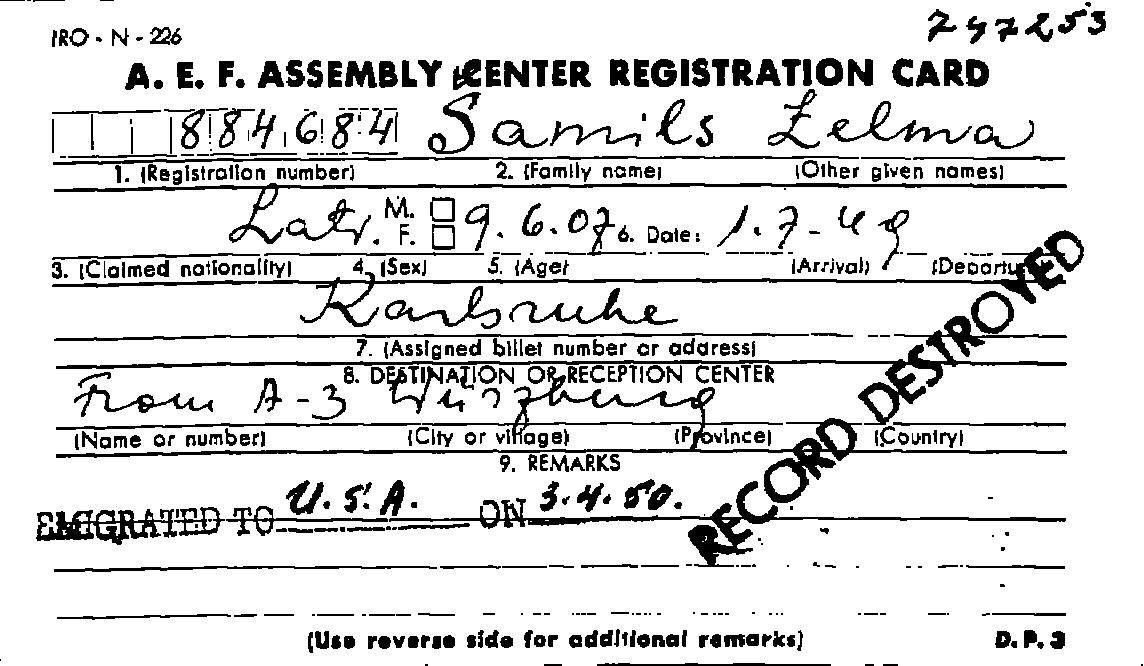 IRO - N - 226
747253
A. E. F. ASSEMBLY CENTER REGISTRATION CARD
884684 Samils Zelma
1. (Registration number) 2. (Family name) (Other given names)
Latv. M. F. 9.6.07 6. Date: 1.7-49
3. (Claimed nationality) 4. (Sex) 5. (Age) (Arrival) (Departure)
Karlsruhe
7. (Assigned billet number or address)
8. DESTINATION OR RECEPTION CENTER
From A-3 Würzburg
(Name or number) (City or village) (Province) (Country)
9. REMARKS
EMIGRATED TO U.S.A. ON 3.4.50.
RECORD DESTROYED
(Use reverse side for additional remarks) D.P.3